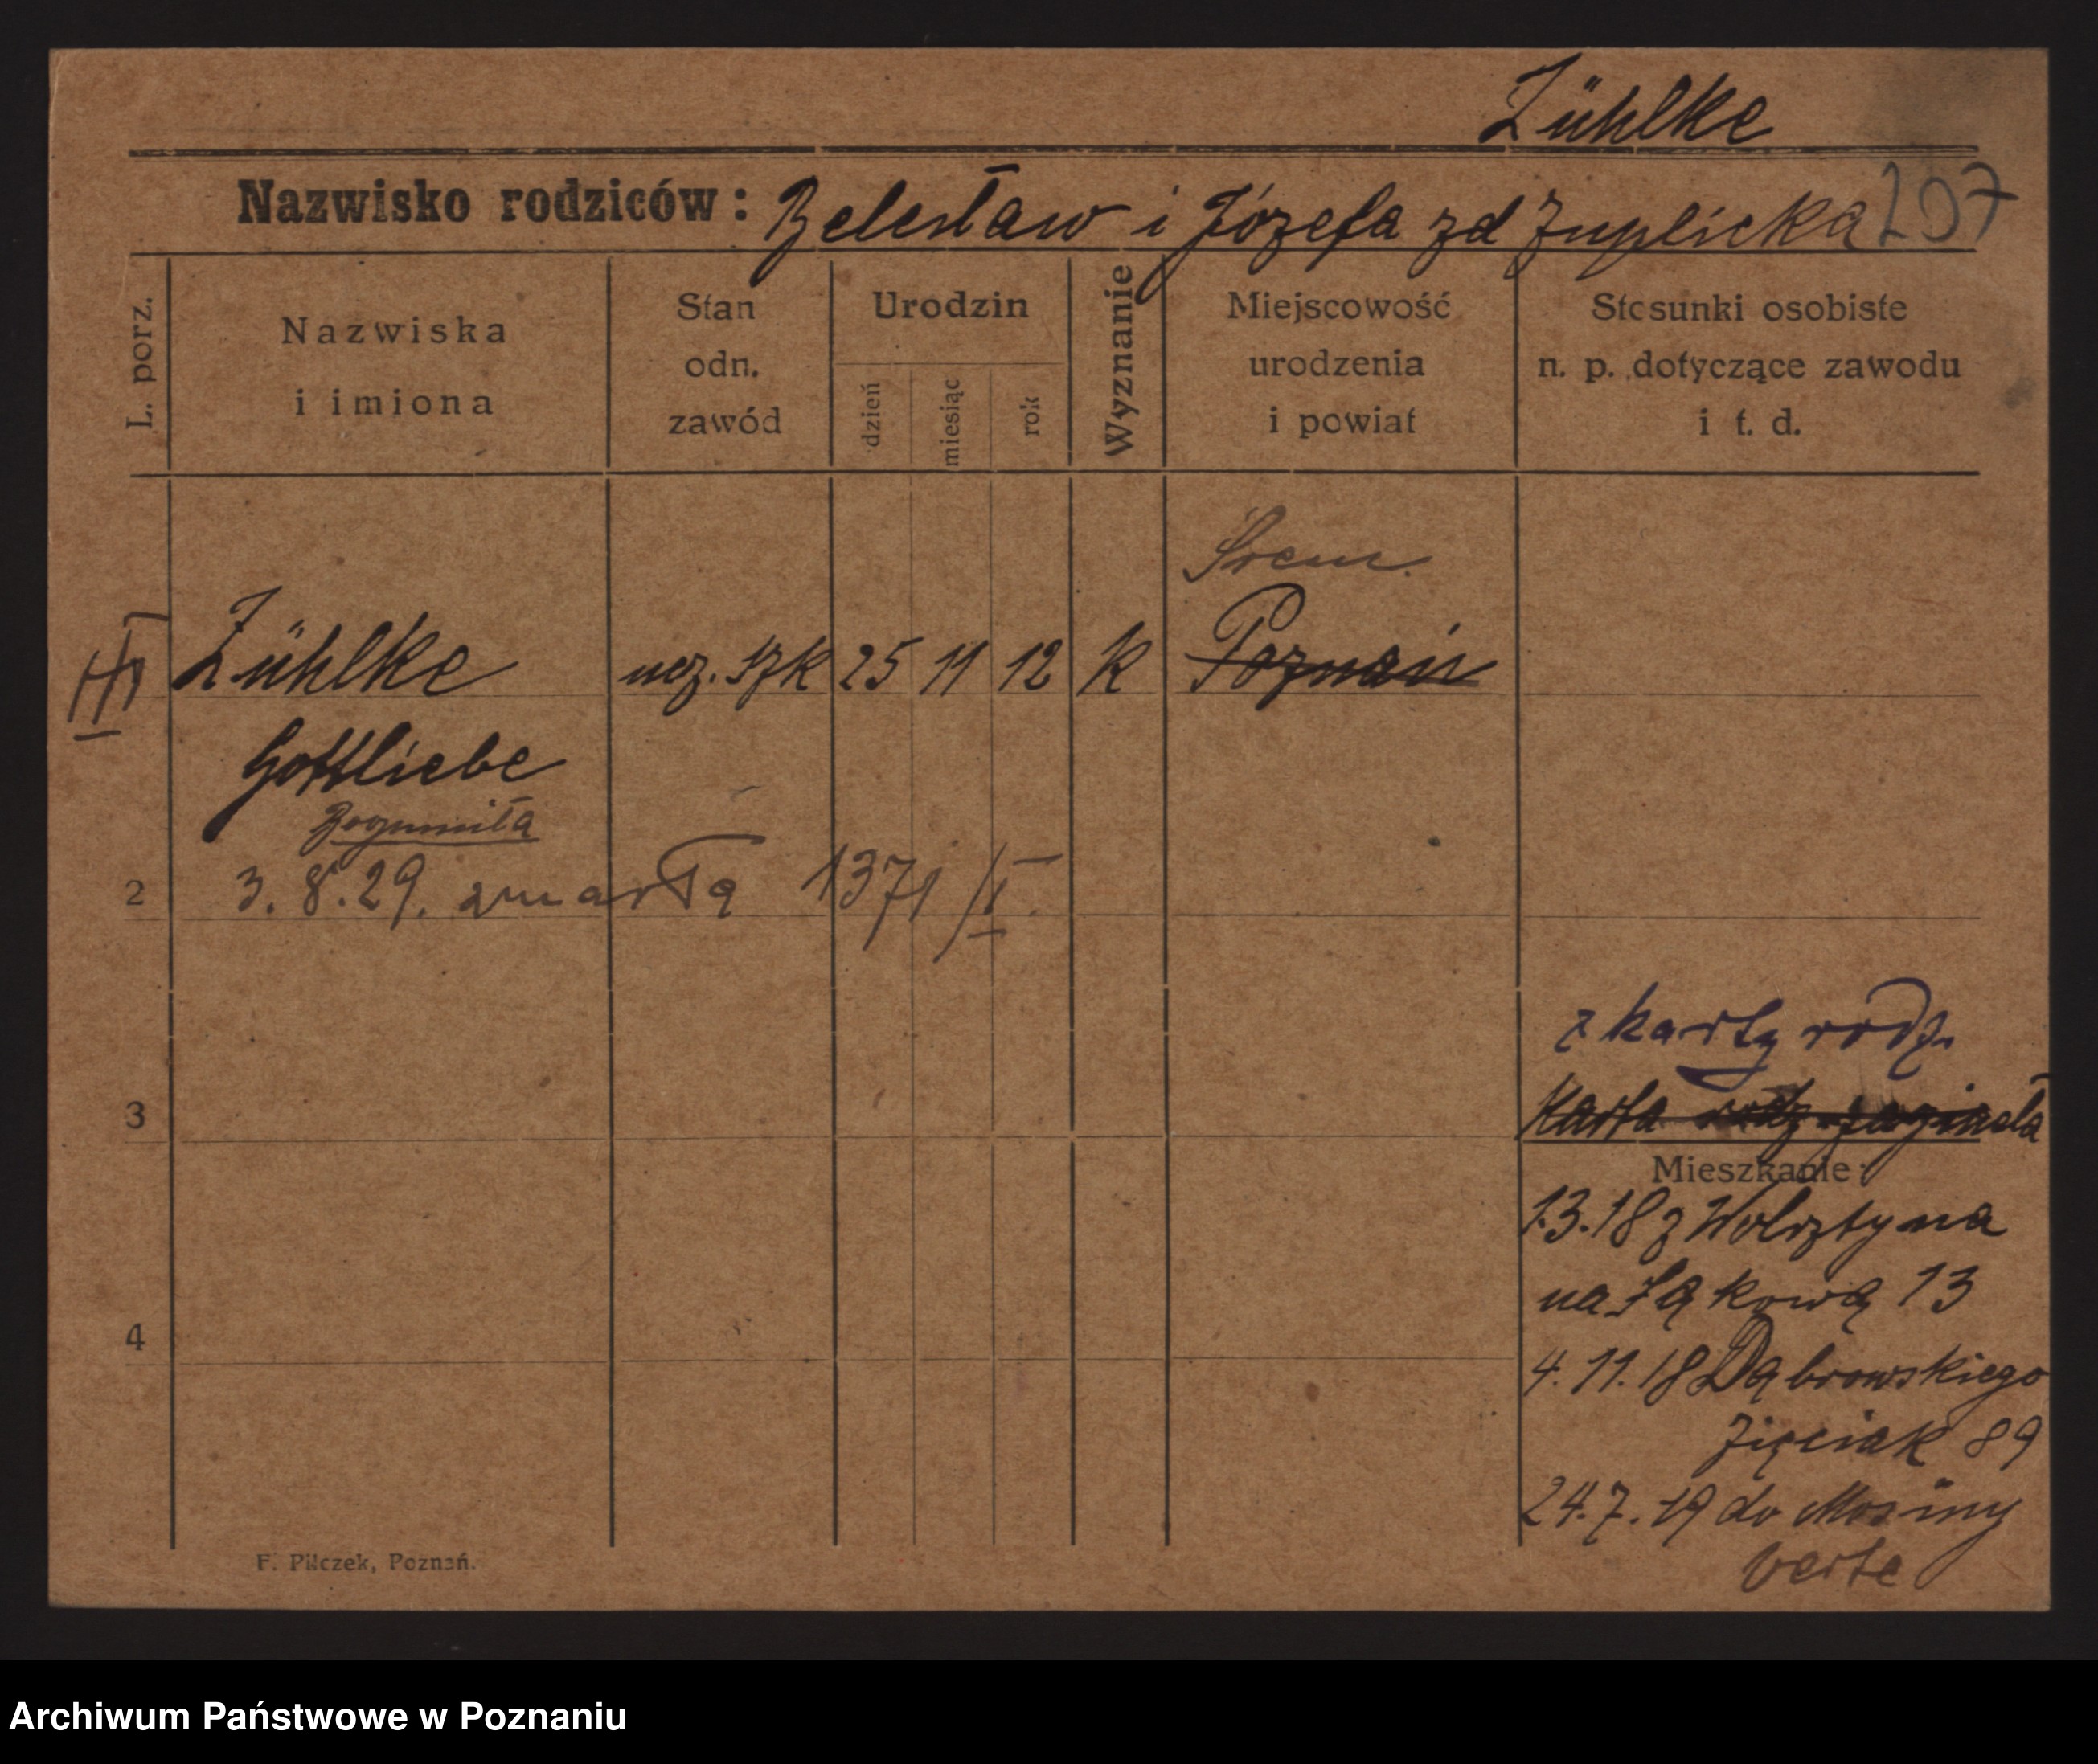 Zühlke
Nazwisko rodziców: Bolesław i Józefa zd Zuplicka 207
L. porz.
Nazwiska
i imiona
Stan
odn.
zawód
Urodzin
dzień
miesiąc
rok
Wyznanie
Miejscowość
urodzenia
i powiat
Stosunki osobiste
n. p. dotyczące zawodu
i t. d.
Śrem.
Zühlke ucz. szk 25 11 12 k Poznań
Gottliebe
Bogumiła
2 3. 8. 29. zmarła 1371 / I
z karty rodz.
3 Karta rodz. zaginęła
Mieszkanie:
1.3.18 z Wolsztyna
na Łąkową 13
4 4. 11. 18 Dąbrowskiego
Zięciak 89
24. 7. 19 do Mosiny
verte
F. Pilczek, Poznań.
Archiwum Państwowe w Poznaniu